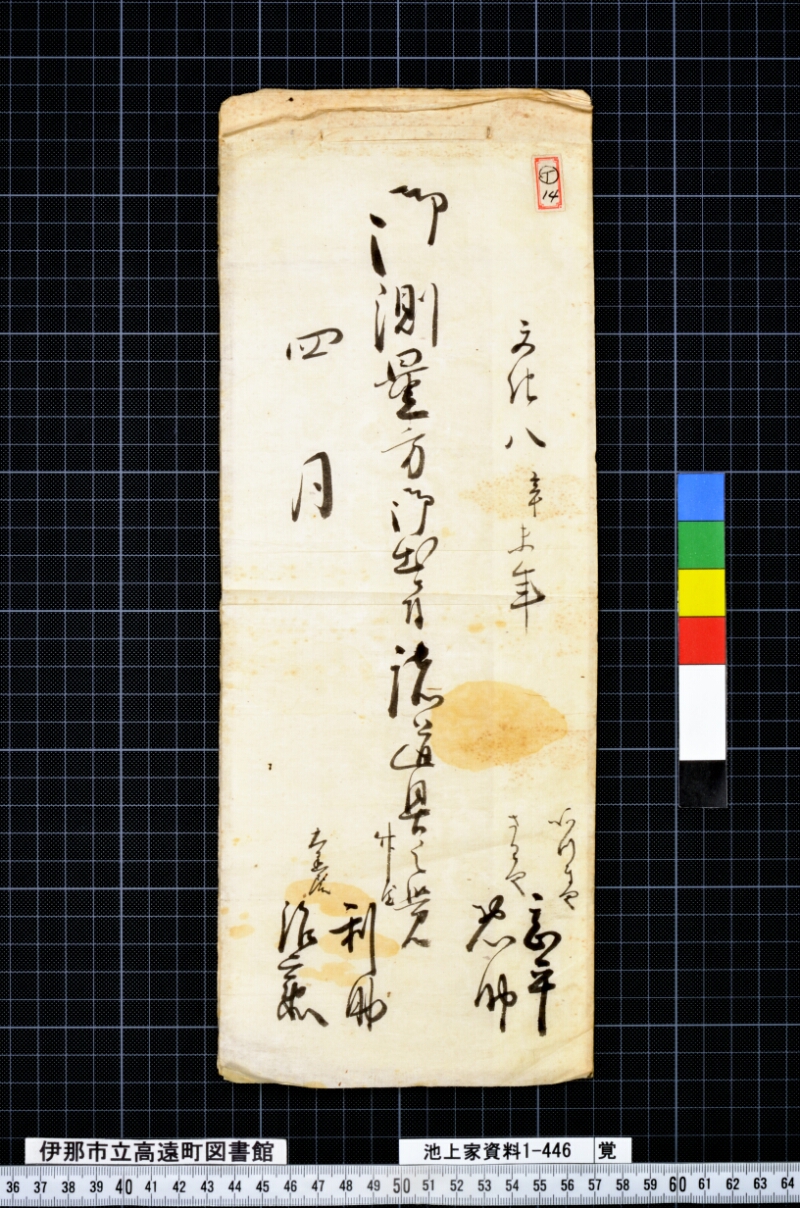 イ
14
文化八辛未年
御測量方御出ニ付諸道具之覚
四月
さかや
忠助
利助
伊那市立高遠町図書館
池上家資料1-446 覚
36 37 38 39 40 41 42 43 44 45 46 47 48 49 50 51 52 53 54 55 56 57 58 59 60 61 62 63 64